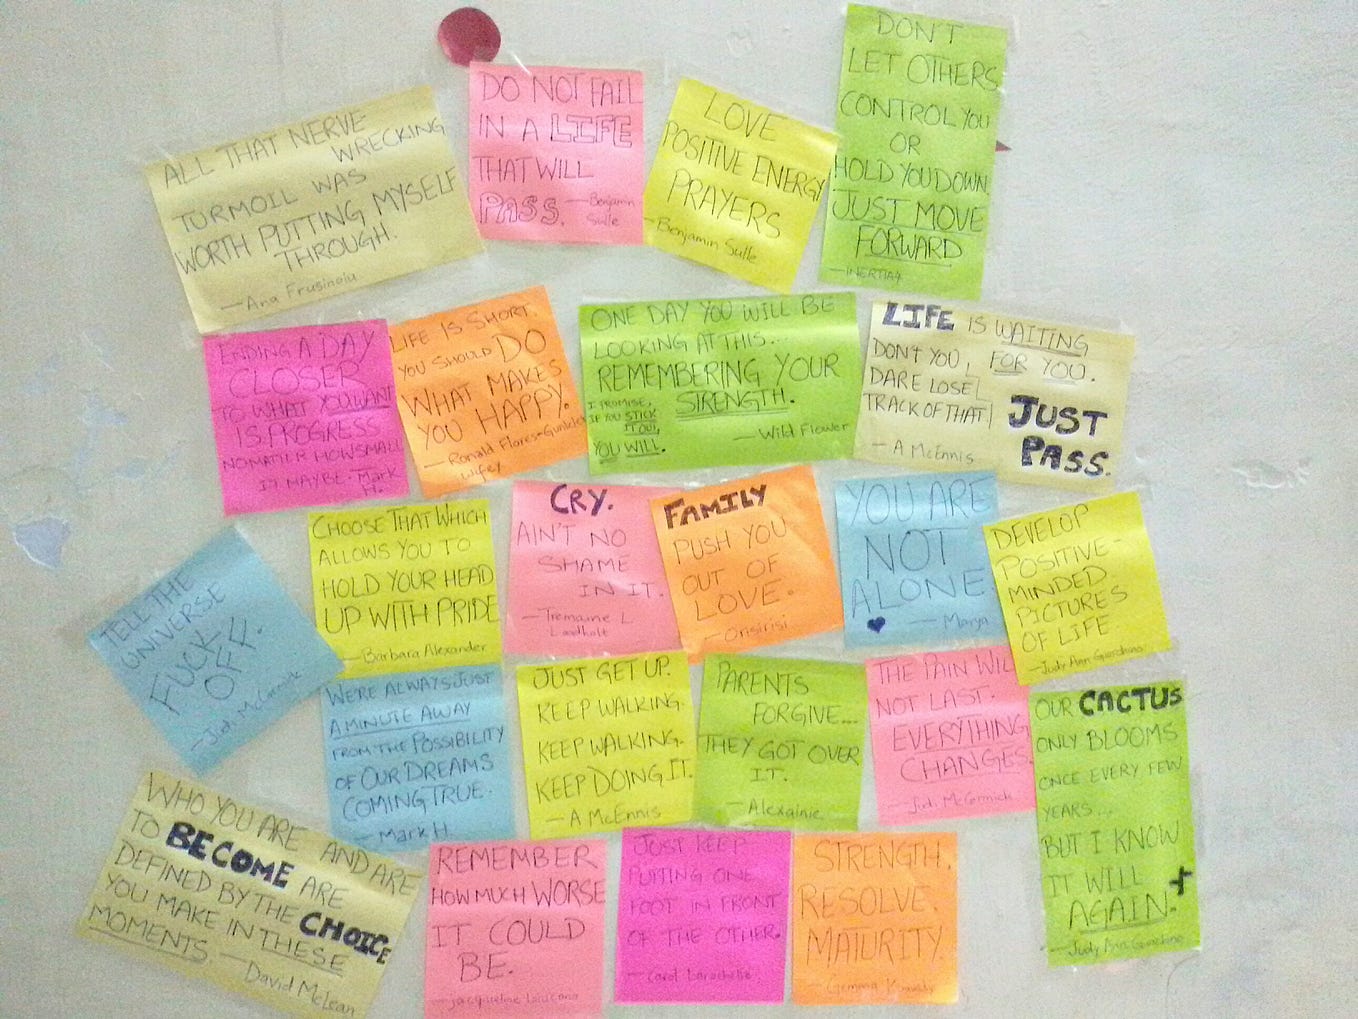 ALL THAT NERVE
WRECKING
TURMOIL WAS
WORTH PUTTING MYSELF
THROUGH.
—Ana Frusinoiu
DO NOT FAIL
IN A LIFE
THAT WILL
PASS. —Benjamin
Sulle
LOVE
POSITIVE ENERGY
PRAYERS
—Benjamin Sulle
DON'T
LET OTHERS
CONTROL YOU
OR
HOLD YOU DOWN
JUST MOVE
FORWARD
—INERTIA4
ENDING A DAY
CLOSER
TO WHAT YOU WANT
IS PROGRESS
NO MATTER HOW SMALL
IT MAYBE. Mark
H.
LIFE IS SHORT.
YOU SHOULD DO
WHAT MAKES
YOU HAPPY.
—Ronald Flores-Gunkle
wifey
ONE DAY YOU WILL BE
LOOKING AT THIS...
REMEMBERING YOUR
STRENGTH.
I PROMISE,
IF YOU STICK
IT OUT,
YOU WILL.
—Wild Flower
LIFE IS WAITING
FOR YOU.
DON'T YOU
DARE LOSE
TRACK OF THAT
JUST
PASS.
—A McEnnis
TELL THE
UNIVERSE
FUCK
OFF.
—Judi McCormick
CHOOSE THAT WHICH
ALLOWS YOU TO
HOLD YOUR HEAD
UP WITH PRIDE
—Barbara Alexander
CRY.
AIN'T NO
SHAME
IN IT.
—Tremaine L
Loadholt
FAMILY
PUSH YOU
OUT OF
LOVE.
—Onsirisi
YOU ARE
NOT
ALONE.
—Marya
DEVELOP
POSITIVE-
MINDED
PICTURES
OF LIFE
—Judy Ann Giordano
WE'RE ALWAYS JUST
A MINUTE AWAY
FROM THE POSSIBILITY
OF OUR DREAMS
COMING TRUE.
—Mark H.
JUST GET UP.
KEEP WALKING.
KEEP WALKING.
KEEP DOING IT.
—A McEnnis
PARENTS
FORGIVE...
THEY GOT OVER
IT.
—Alexainie
THE PAIN WILL
NOT LAST.
EVERYTHING
CHANGES.
—Judi McCormick
OUR CACTUS
ONLY BLOOMS
ONCE EVERY FEW
YEARS...
BUT I KNOW
IT WILL
AGAIN.
—Judy Ann Giordano
WHO YOU ARE AND ARE
TO BECOME ARE
DEFINED BY THE CHOICE
YOU MAKE IN THESE
MOMENTS. —David McLean
REMEMBER
HOW MUCH WORSE
IT COULD
BE.
—Jacqueline
JUST KEEP
PUTTING ONE
FOOT IN FRONT
OF THE OTHER.
—Carol Larochelle
STRENGTH.
RESOLVE.
MATURITY.
—Gemma Kennedy